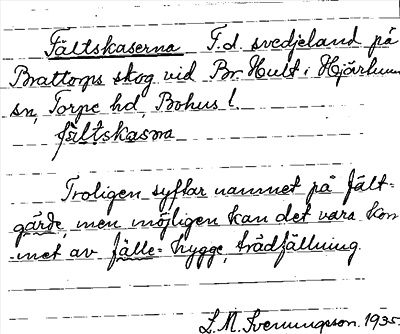 Fältskaserna F.d. svedjeland på
Brattorps skog vid Br. Hult i Hjärtum
sn, Torpe hd, Bohus l.
fältskasna
Troligen syftar namnet på fält-
gärde, men möjligen kan det vara kom-
met av fälle- hygge, trädfällning.
L.M. Svenungsson. 1935